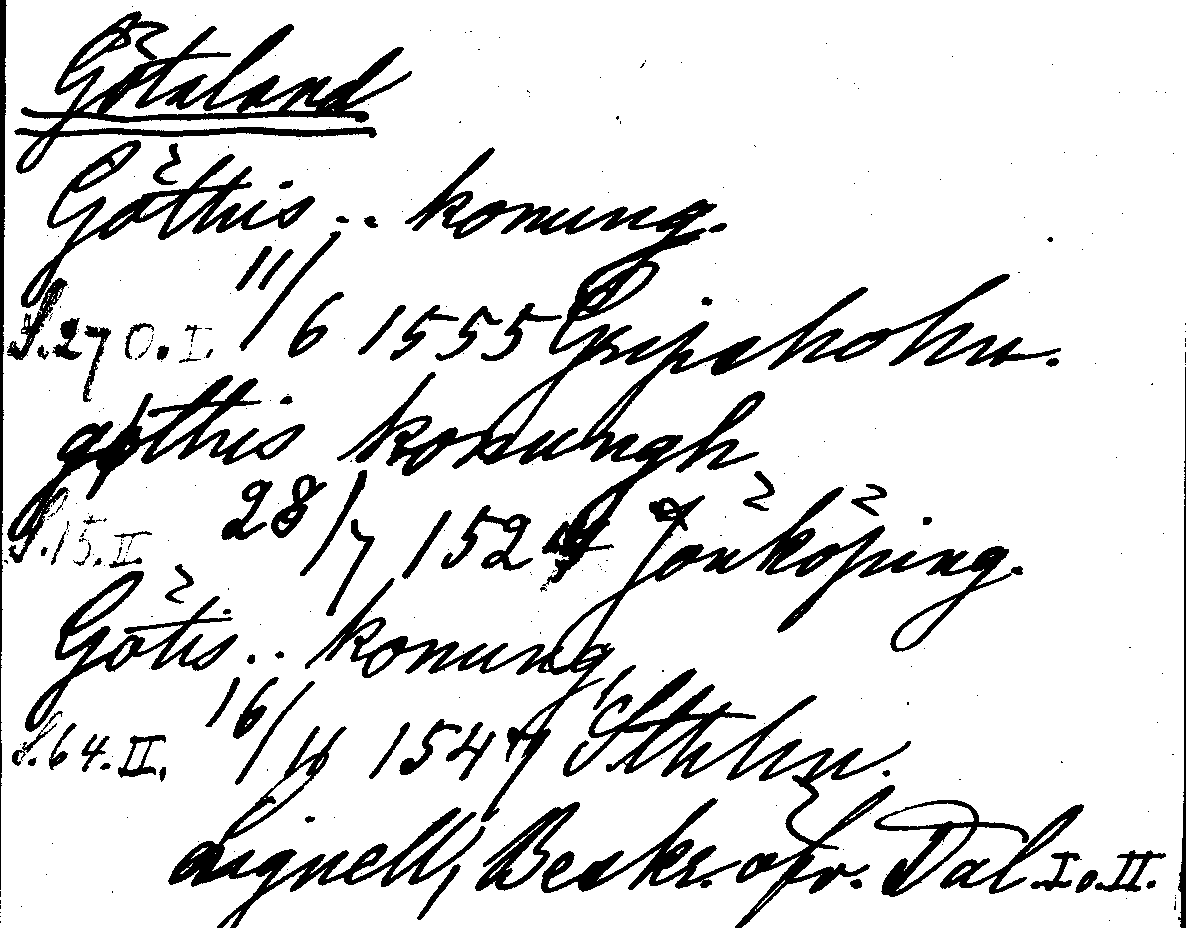 Götaland
Göthis .. konung.
S. 270. I. 11/6 1555 Gripsholm.
göthis konungh
S. 15. II 28/7 152 Jönköping.
Götis .. konung
S. 64. II. 16/ 154 Sthlm.
Lignell, Beskr. öfv. Dal. I o. II.